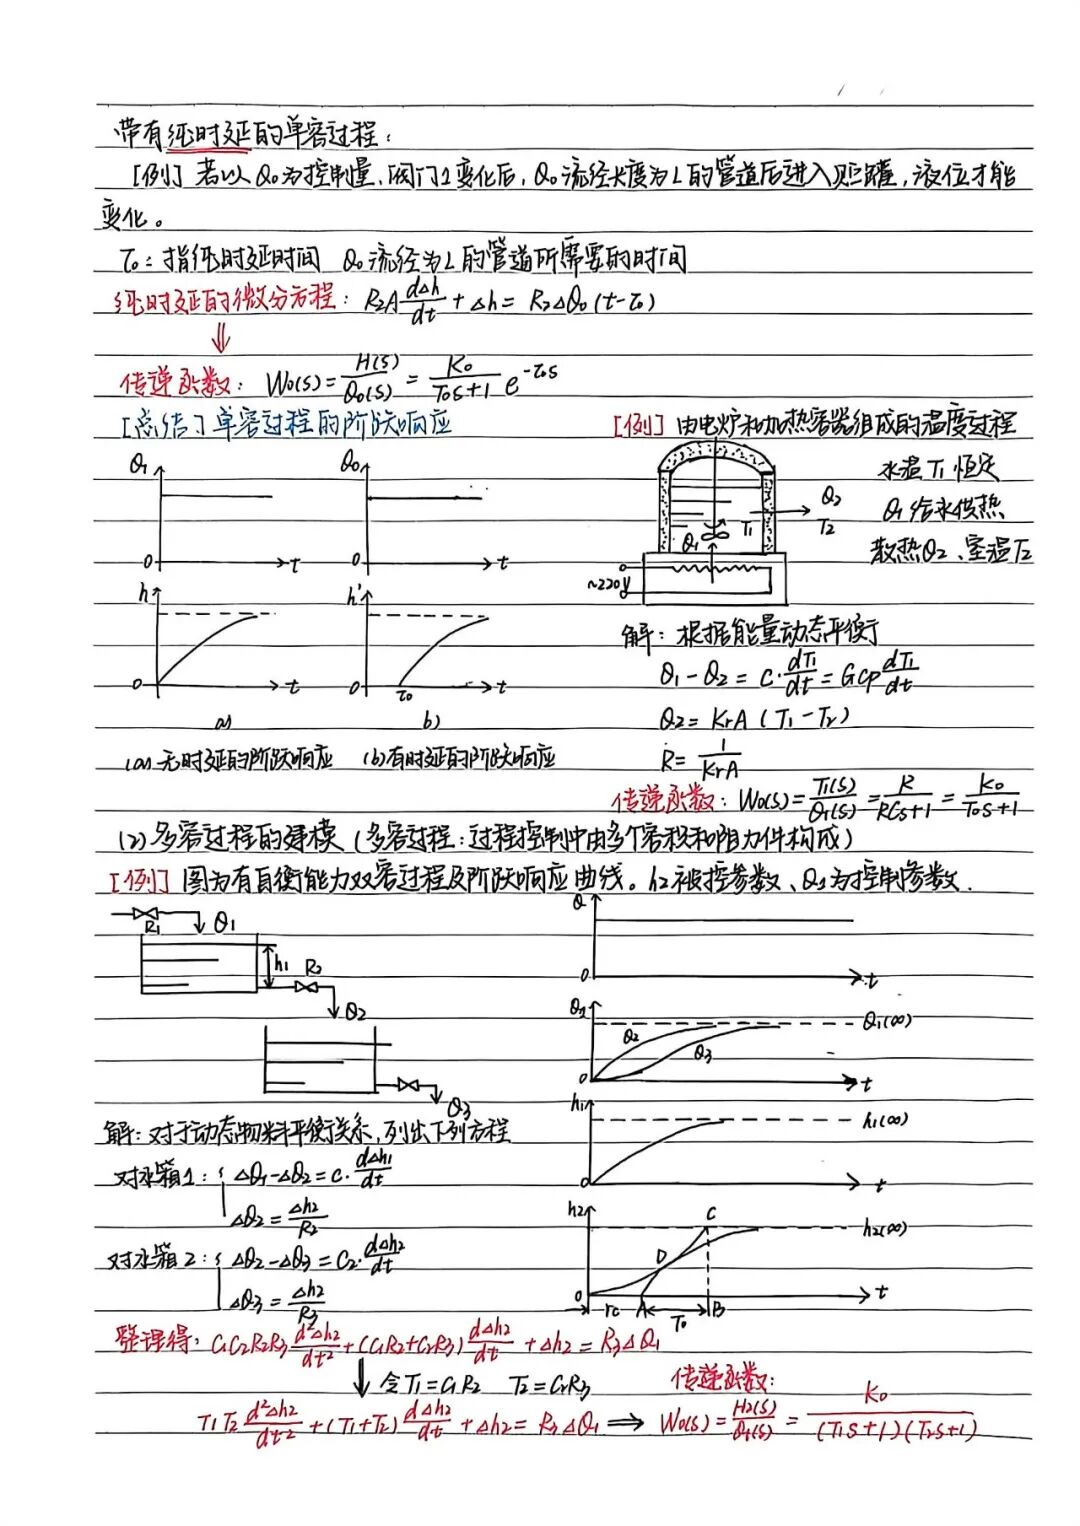 带有纯时延的单容过程：
[例] 若以Q₀为控制量、阀门1变化后，Q₀流经长度为L的管道后进入贮罐，液位才能
变化。
τ₀：指纯时延时间 Q₀流经为L的管道所需要的时间
纯时延的微分方程：R₂A dΔh/dt + Δh = R₂ΔQ₀(t-τ₀)
⇓
传递函数：W₀(s) = H(s)/Q₀(s) = K₀/(T₀s+1) e^(-τ₀s)
[总结] 单容过程的阶跃响应
Q₁
0
t
Q₀
0
t
h
0
t
a)
h'
0
τ₀
t
b)
(a) 无时延的阶跃响应 (b) 有时延的阶跃响应
[例] 由电炉和加热容器组成的温度过程
水温T₁恒定
Q₁给水供热
散热Q₂、室温T₂
Q₂
T₁
T₂
Q₁
~220V
解：根据能量动态平衡
Q₁-Q₂ = C·dT₁/dt = Gcp dT₁/dt
Q₂ = KrA (T₁-T₂)
R = 1/KrA
传递函数：W₀(s) = T₁(s)/Q₁(s) = R/(RCs+1) = K₀/(T₀s+1)
(2) 多容过程的建模 (多容过程：过程控制中由多个容积和阻力件构成)
[例] 图为有自衡能力双容过程及阶跃响应曲线。h₂被控参数、Q₁为控制参数.
R₁
Q₁
h₁
R₂
Q₂
Q₃
Q
0
t
Q₁
Q₂
Q₃
Q₁(∞)
0
t
h₁
h₁(∞)
0
t
h₂
C
h₂(∞)
D
0
τc
A
T₀
B
t
解：对于动态物料平衡关系，列出下列方程
对水箱1： ΔQ₁-ΔQ₂ = C·dΔh₁/dt
ΔQ₂ = Δh₂/R₂
对水箱2： ΔQ₂-ΔQ₃ = C₂·dΔh₂/dt
ΔQ₃ = Δh₂/R₃
整理得：C₁C₂R₂R₃ d²Δh₂/dt² + (C₁R₂+C₂R₃) dΔh₂/dt + Δh₂ = R₃ΔQ₁
⇓ 令T₁=C₁R₂ T₂=C₂R₃
传递函数：
T₁T₂ d²Δh₂/dt² + (T₁+T₂) dΔh₂/dt + Δh₂ = R₃ΔQ₁ ⇒ W₀(s) = H₂(s)/Q₁(s) = K₀/(T₁s+1)(T₂s+1)